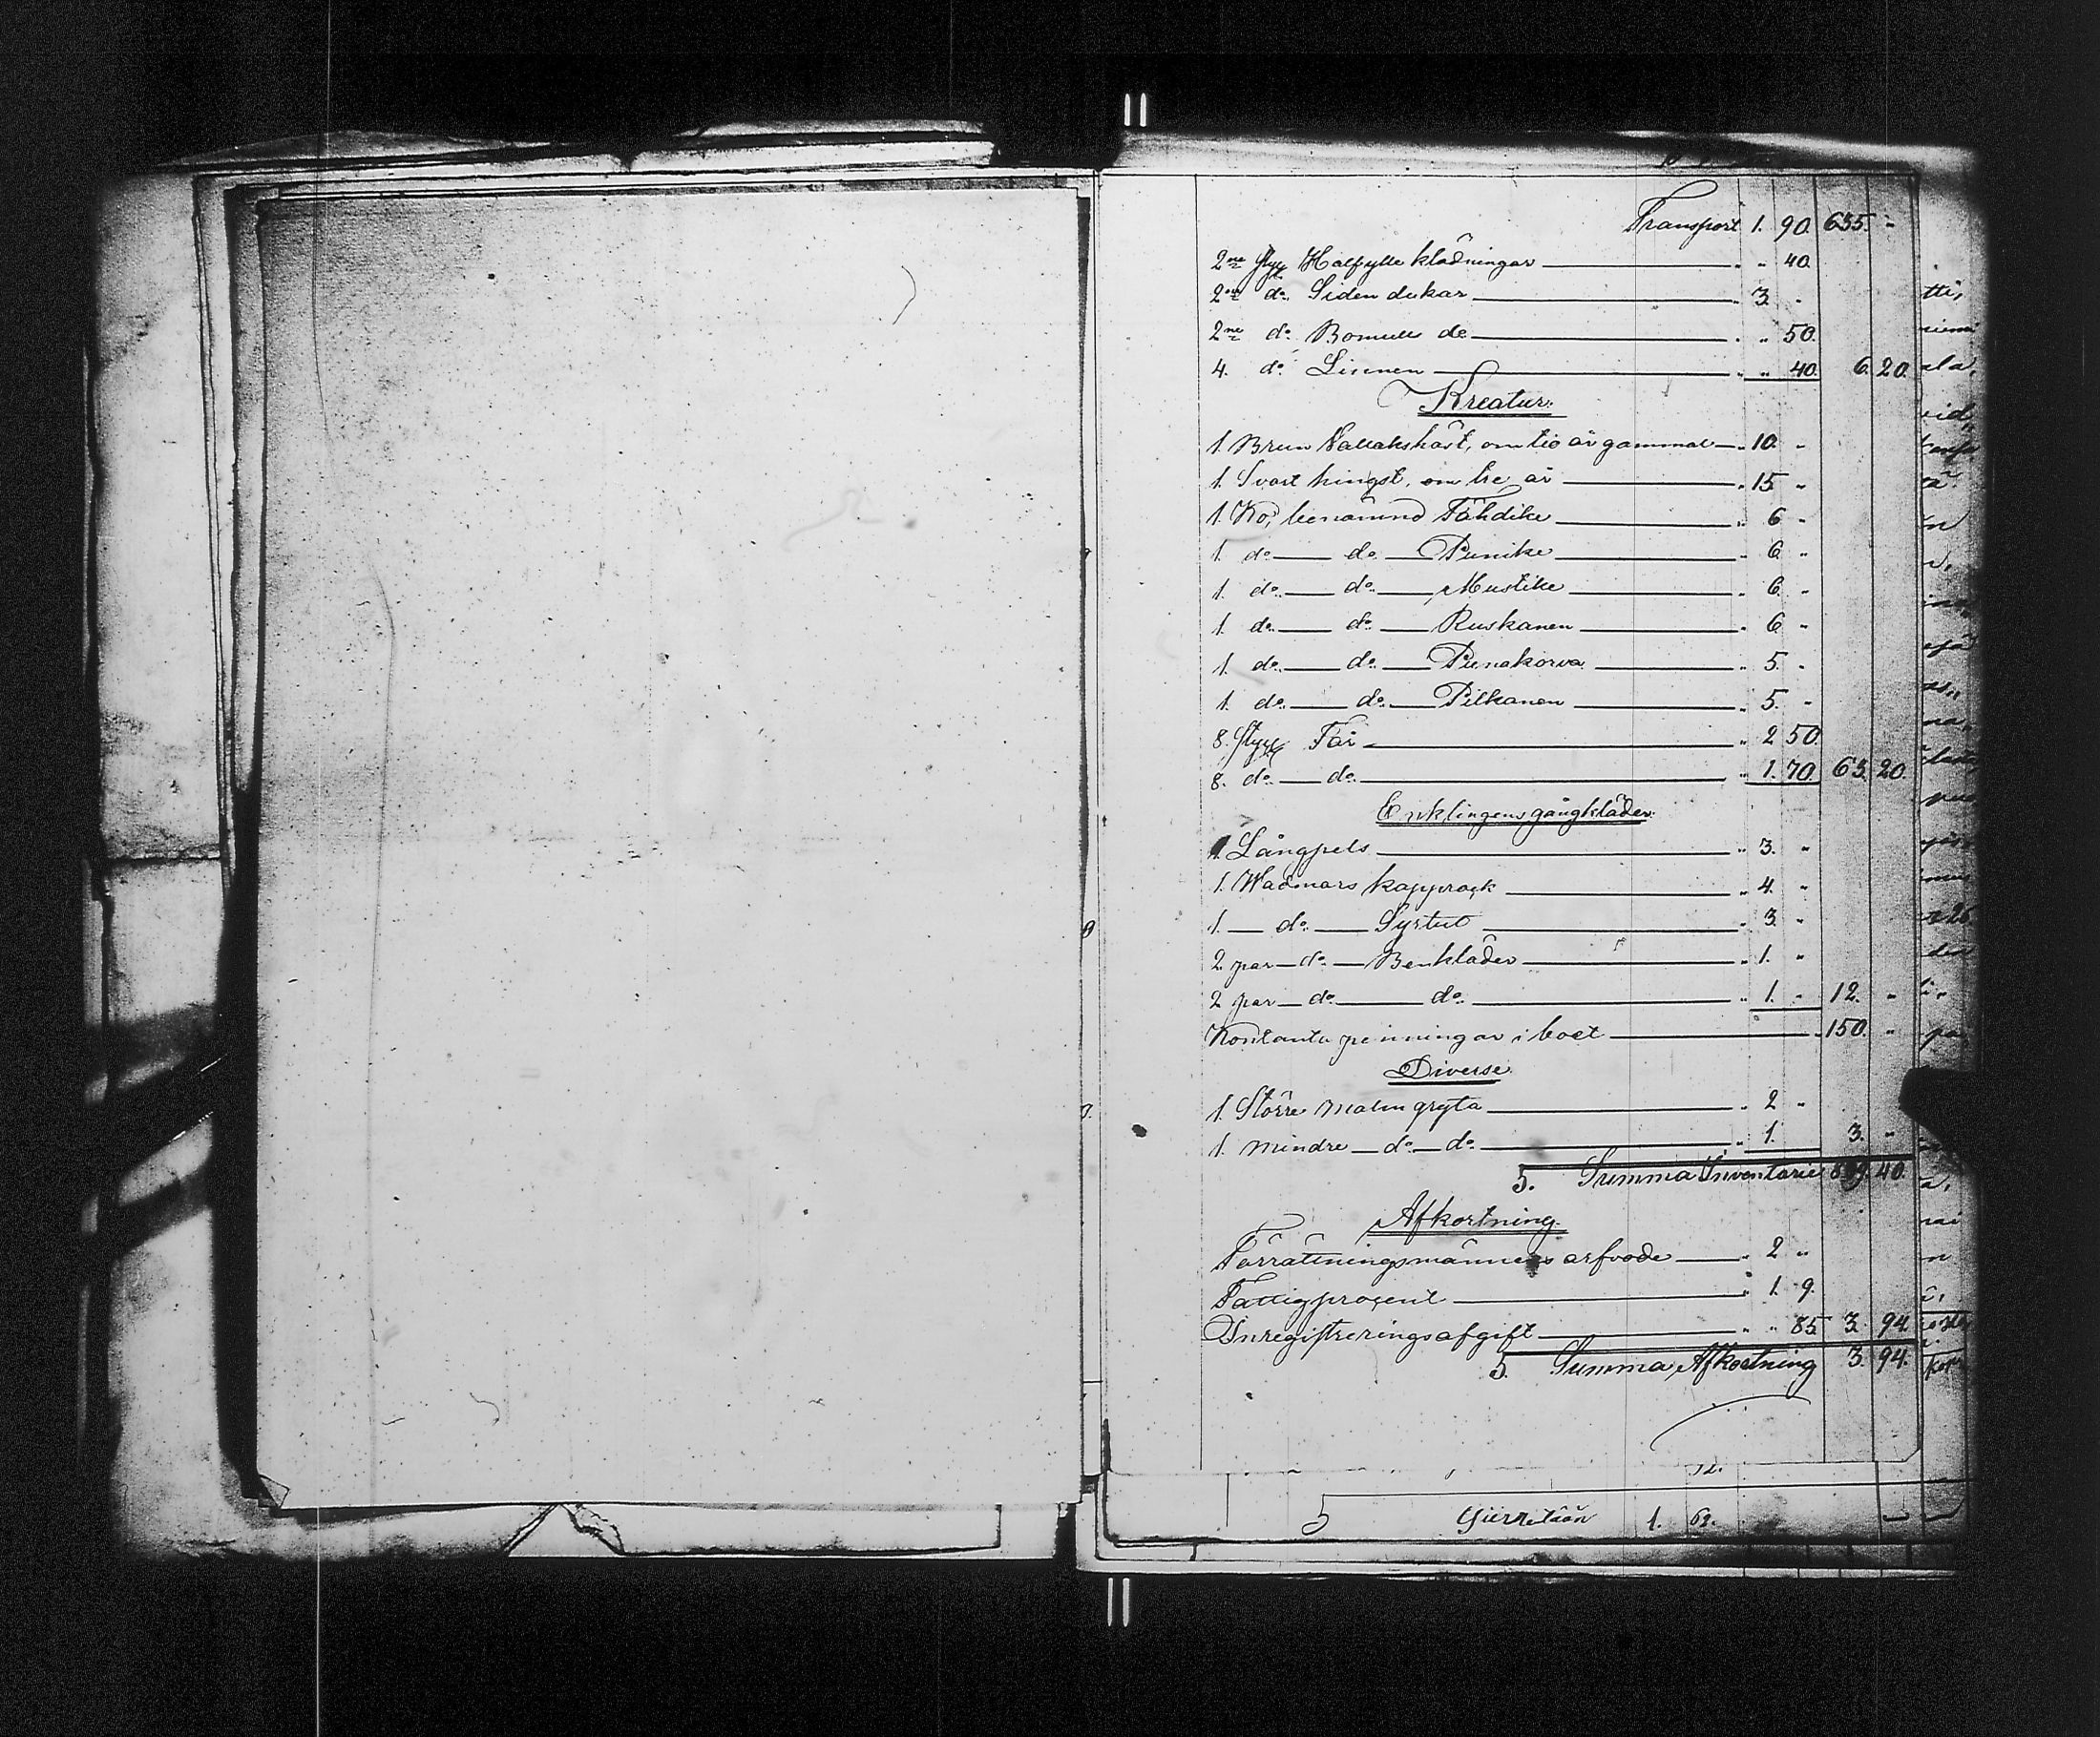 Transport 1. 90. 635. -
2ne styg Halfylle klädningar " " 40.
2ne do Siden dukar " 3. "
2ne do Bomulls do " " 50.
4. do Linnen " " 40. 6. 20.
Kreatur.
1. Brun Vallakshäst, om tio år gammal " 10. "
1. Svart hingst, om tre år " 15 "
1. Ko, benämnd Tähdike " 6 "
1 do do Punike " 6 "
1. do do Mustike " 6. "
1 do do Ruskanen " 6 "
1. do do Punakorva " 5. "
1. do do Pilkanen " 5. "
8. styg Får " 2 50
8. do do " 1. 70. 63. 20.
Enklingens gångkläder.
1. Långpels " 3. "
1. Wadmars kapprock " 4. "
1. do Syrtut " 3. "
2 par do Benkläder " 1. "
2 par do do " 1. " 12. "
Kontanta penningar i boet " 150. "
Diverse.
1. Större malm gryta " 2 "
1. mindre do do " 1. 3. "
S. Summa Inventarie 40.
Afkortning.
Förrättningsmännens arfvode " 2 "
Fattigprocent " 1. 9.
Inregistreringsafgift " " 85 3. 94
S. Summa Afkortning 3. 94.
S 1. 62.